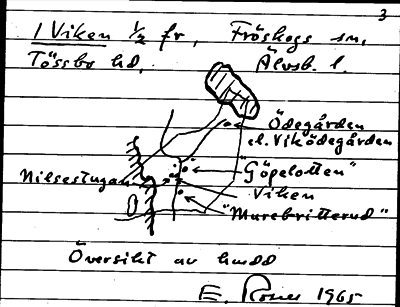 3
1 Viken 1/2 fr, Fröskogs sn,
Tössbo hd, Älvsb. l.
Ödegården
el. Viködegården
"Göpelotten"
Nilsestugan
Viken
"Murebritterud"
Översikt av
E. 1965